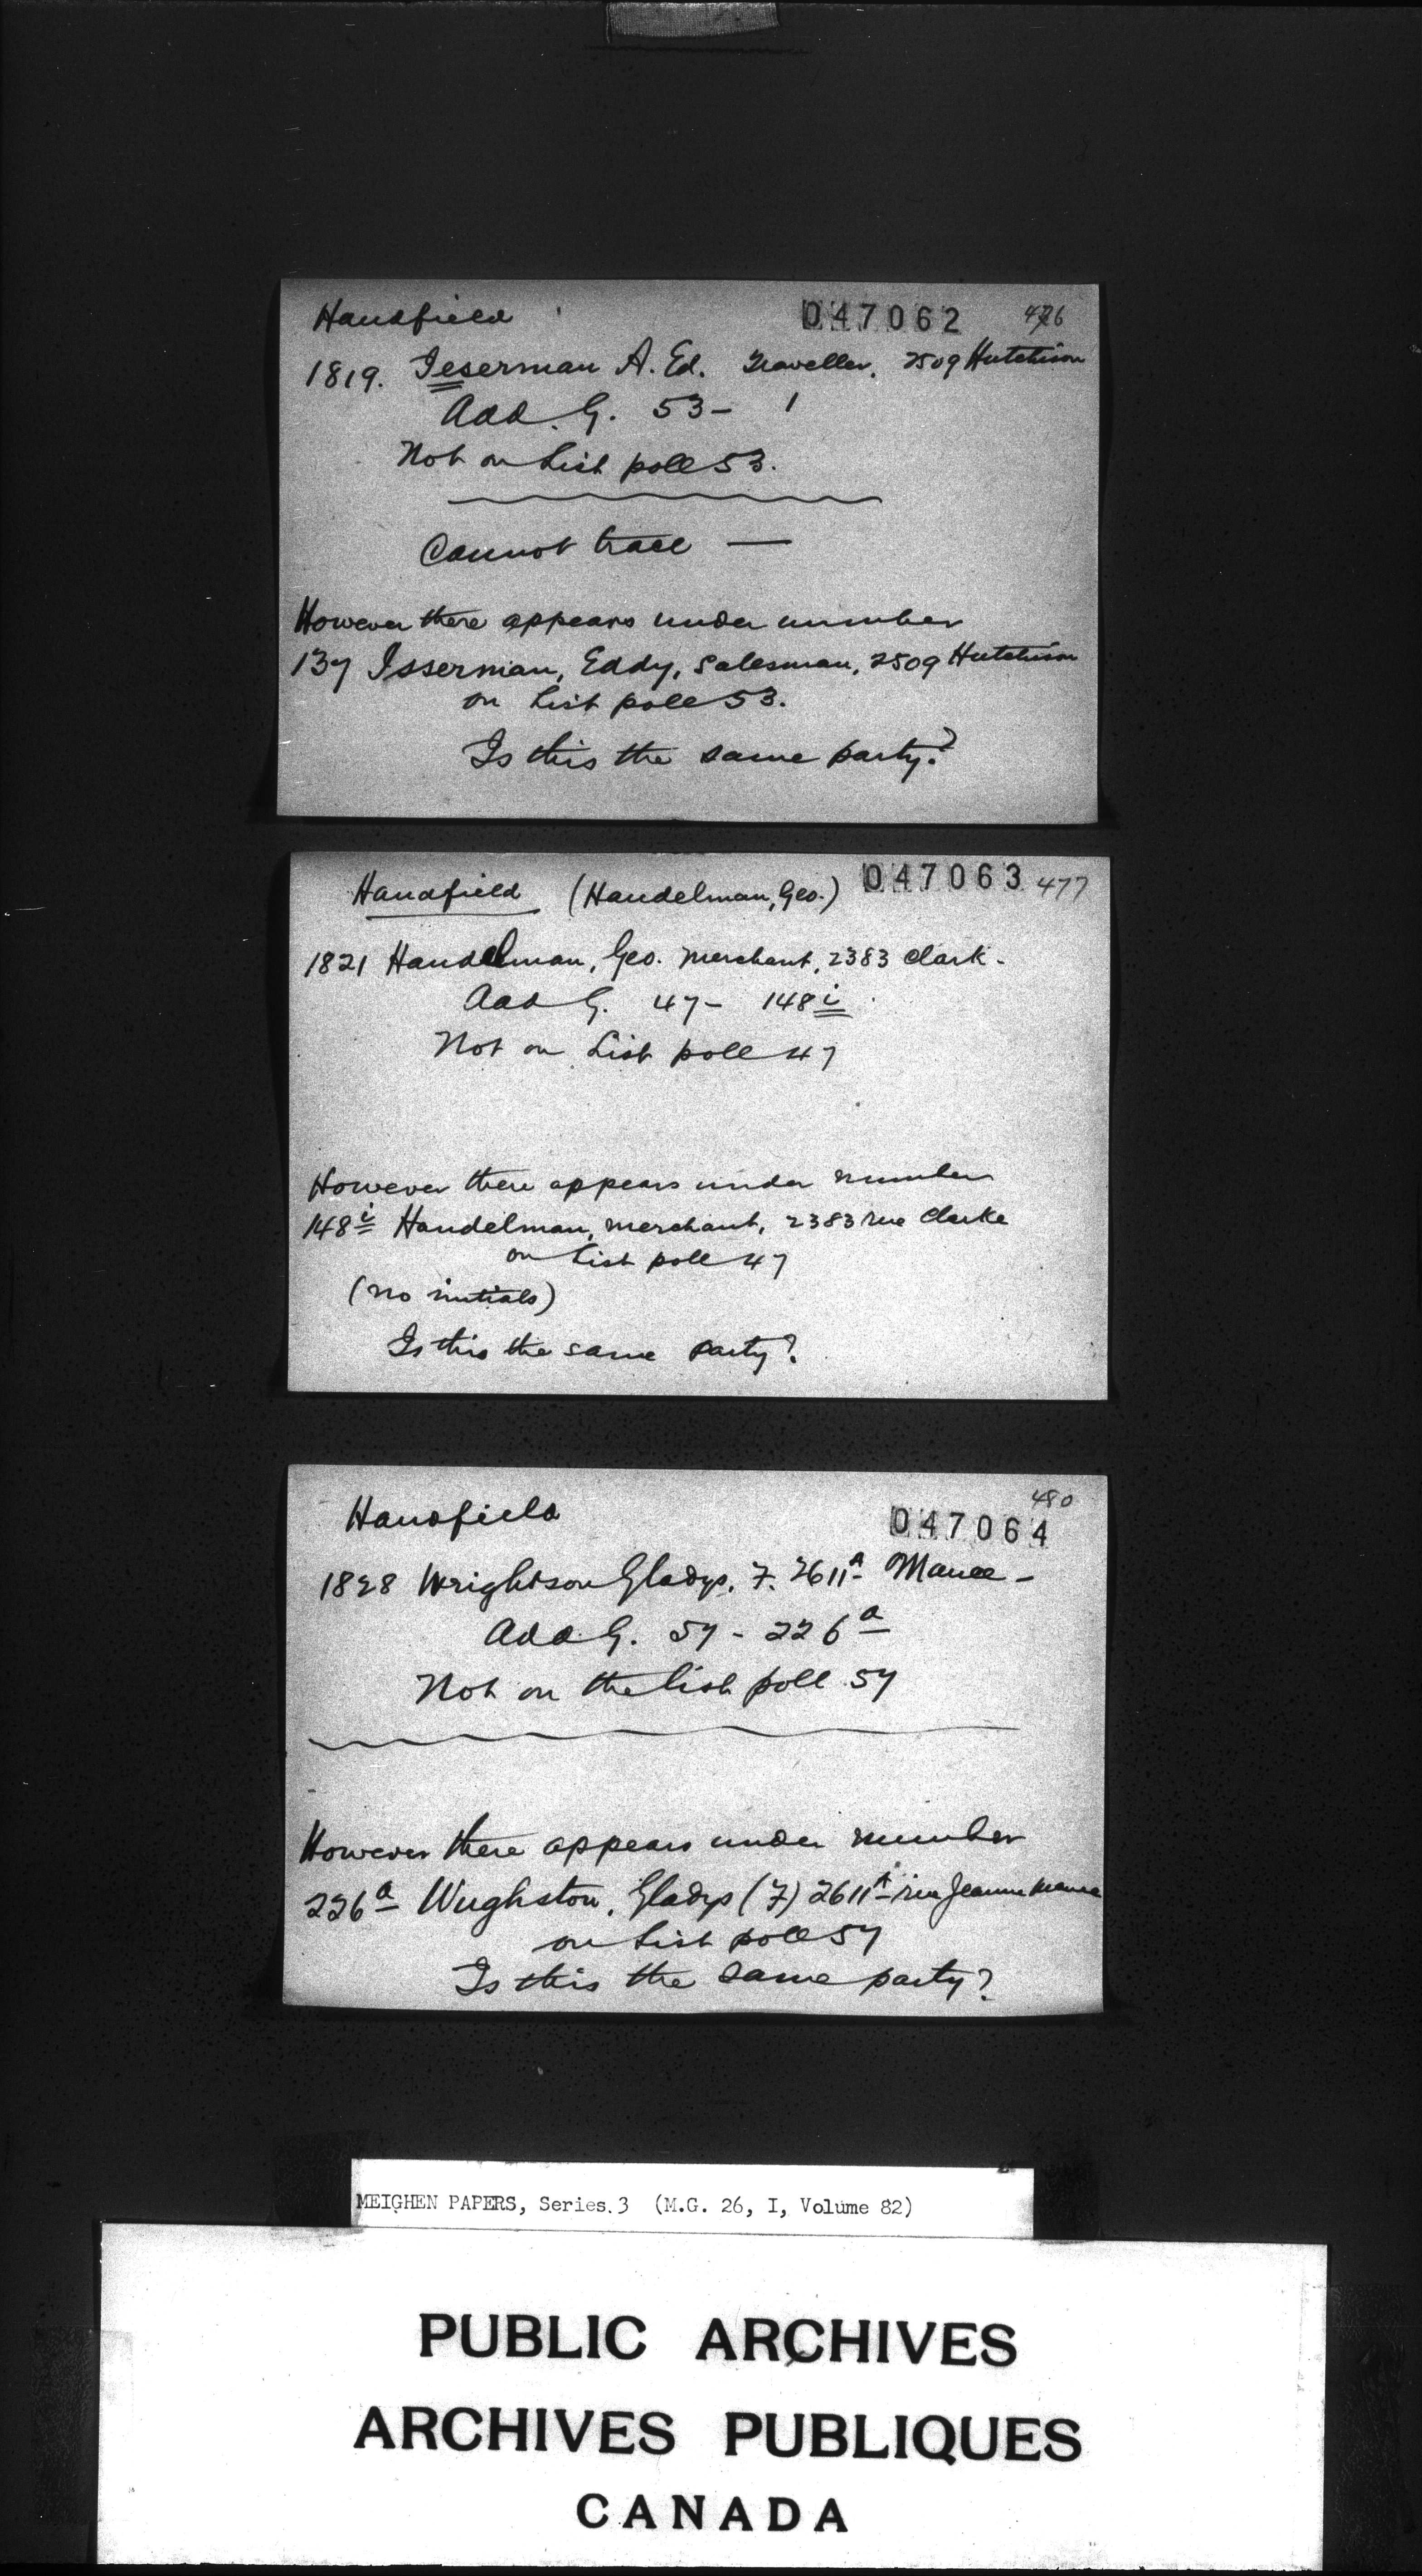 Handfield 047062 476
1819. Ieserman A. Ed. Traveller. 2509 Hutchison
Add. G. 53 - 1
Not on List poll 53.
Cannot trace —
However there appears under number
137 Isserman, Eddy, Salesman, 2509 Hutchison
on List poll 53.
Is this the same party?
Handfield (Handelman, Geo.) 047063 477
1821 Handelman, Geo. Merchant, 2383 Clark -
Add G. 47 - 148 i
Not on List poll 47
However there appears under number
148 i Handelman, merchant, 2383 rue Clarke
on List poll 47
(no initials)
Is this the same party?
480
Handfield 047064
1828 Wrightson Gladys. F. 2611A Mance -
Add G. 57 - 226 a
Not on the List poll 57
However there appears under number
226 a Wughston, Gladys (F) 2611A rue Jeanne Mance
on List poll 57
Is this the same party?
MEIGHEN PAPERS, Series 3 (M.G. 26, I, Volume 82)
PUBLIC ARCHIVES
ARCHIVES PUBLIQUES
CANADA